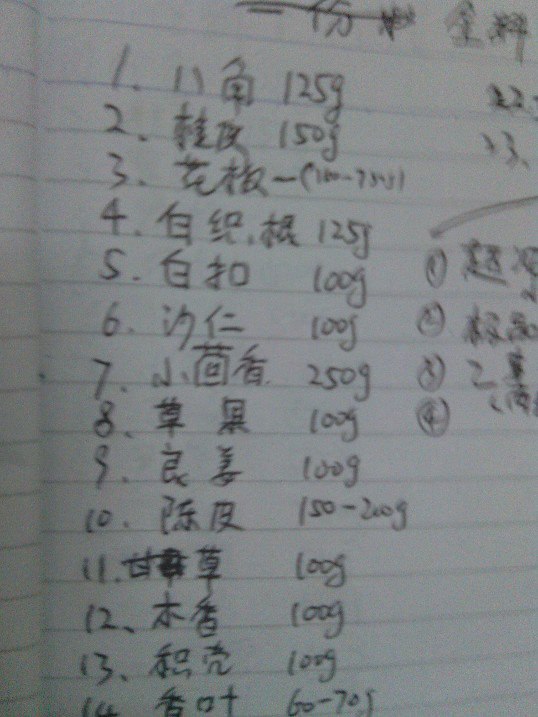 一份料 全料
1. 八角 125g
2. 桂皮 150g
3. 花椒一
4. 白织.棍 125g
5. 白扣 100g
6. 沙仁 100g
7. 小茴香 250g
8. 草果 100g
9. 良姜 100g
10. 陈皮 150-200g
11. 甘草 100g
12. 木香 100g
13. 积壳 100g
14 香叶 60-70g
①
②
③
④